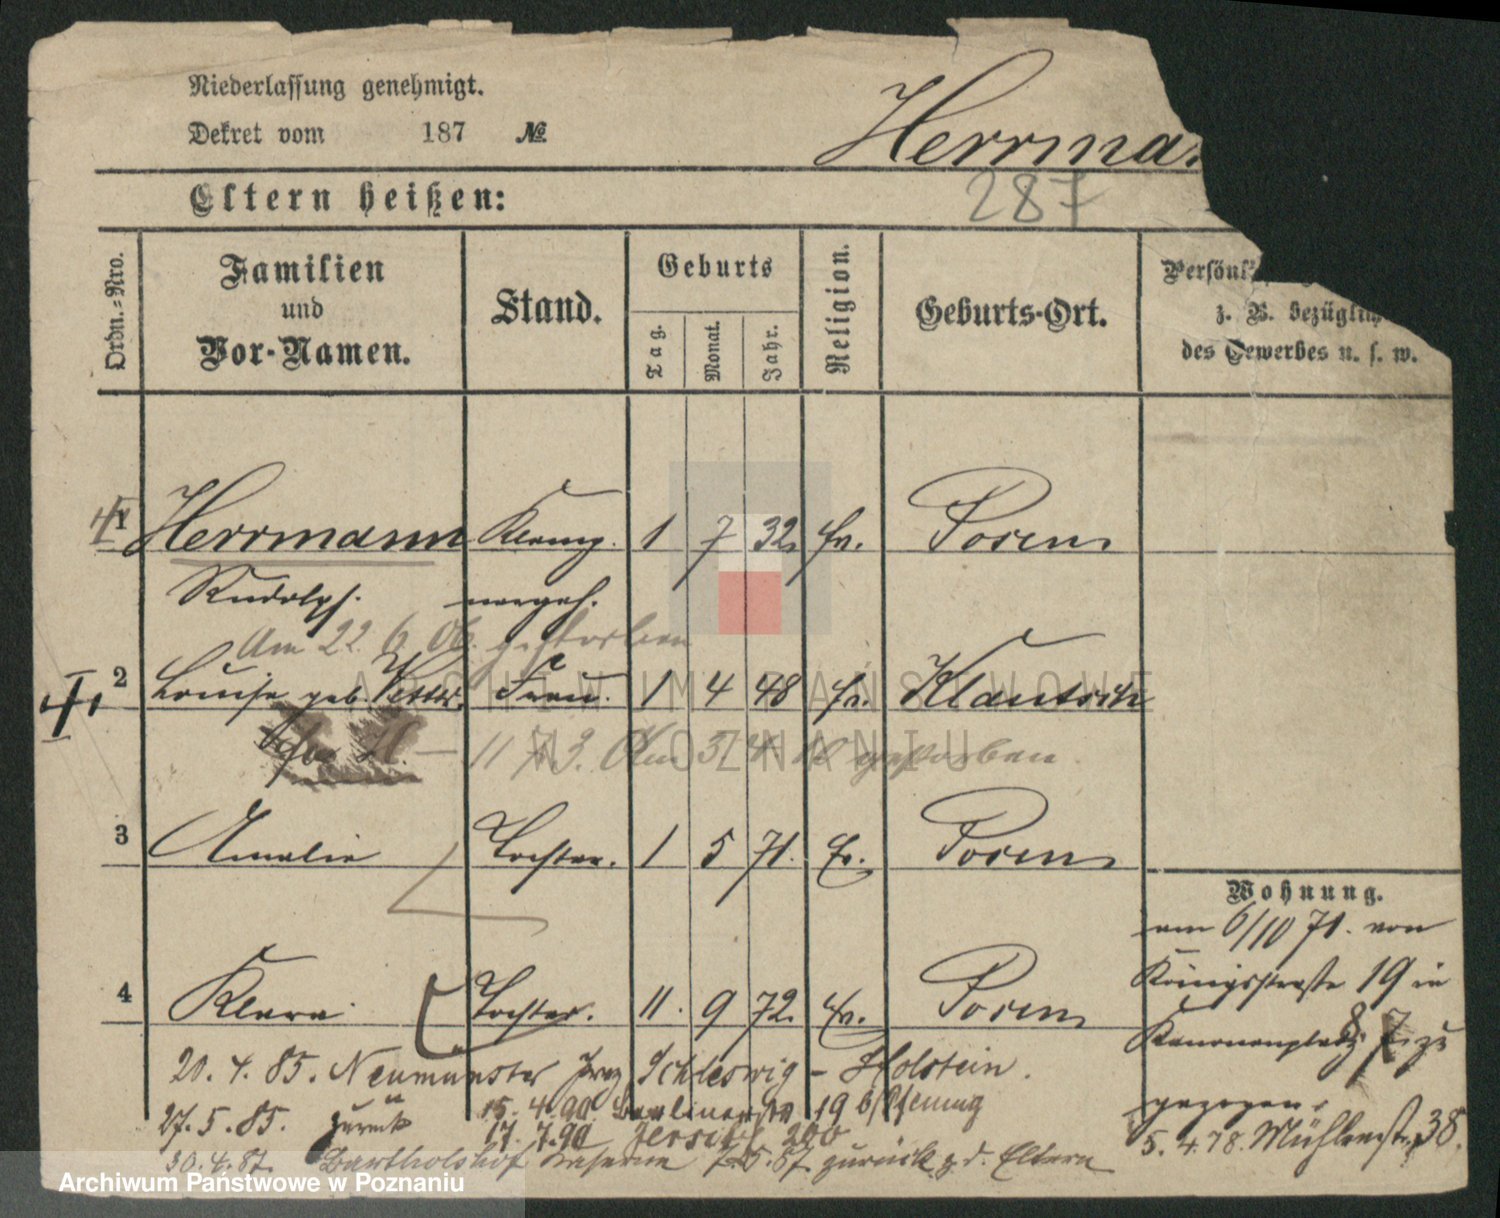 Niederlassung genehmigt.
Dekret vom 187 №
Herrma
287
Eltern heißen:
Ordn.-Nro.
Familien und Vor-Namen.
Stand.
Geburts
Tag.
Monat.
Jahr.
Religion.
Geburts-Ort.
Persönl
z. B. bezüglich
des Gewerbes u. s. w.
1 Herrmann 1 7 32 Posen
Rudolph.
Am 22. 6. 06. gestorben
2 Louise geb. Frau. 1 4 48 Klautsch
11 73. Am 3. gestorben
3 Amalie Tochter. 1 5 71. Ev. Posen
4 Klara Tochter. 11. 9 72. Ev. Posen
Wohnung.
am 6/10 71. von
Königsstraße 19 in
Kanonenplatz 8 zu
gezogen
5. 4. 78. Mühlenstr. 38.
20. 4. 85. Neumünster Schleswig-Holstein.
27. 5. 85. zurück
15. 4. 90. Berlinerstr. 19 b/Pfennig
17. 7. 90 Jersitz 200
30. 4. 87. Bartholdshof Kaserne 87 zurück z. d. Eltern
ARCHIWUM PAŃSTWOWE
W POZNANIU
Archiwum Państwowe w Poznaniu